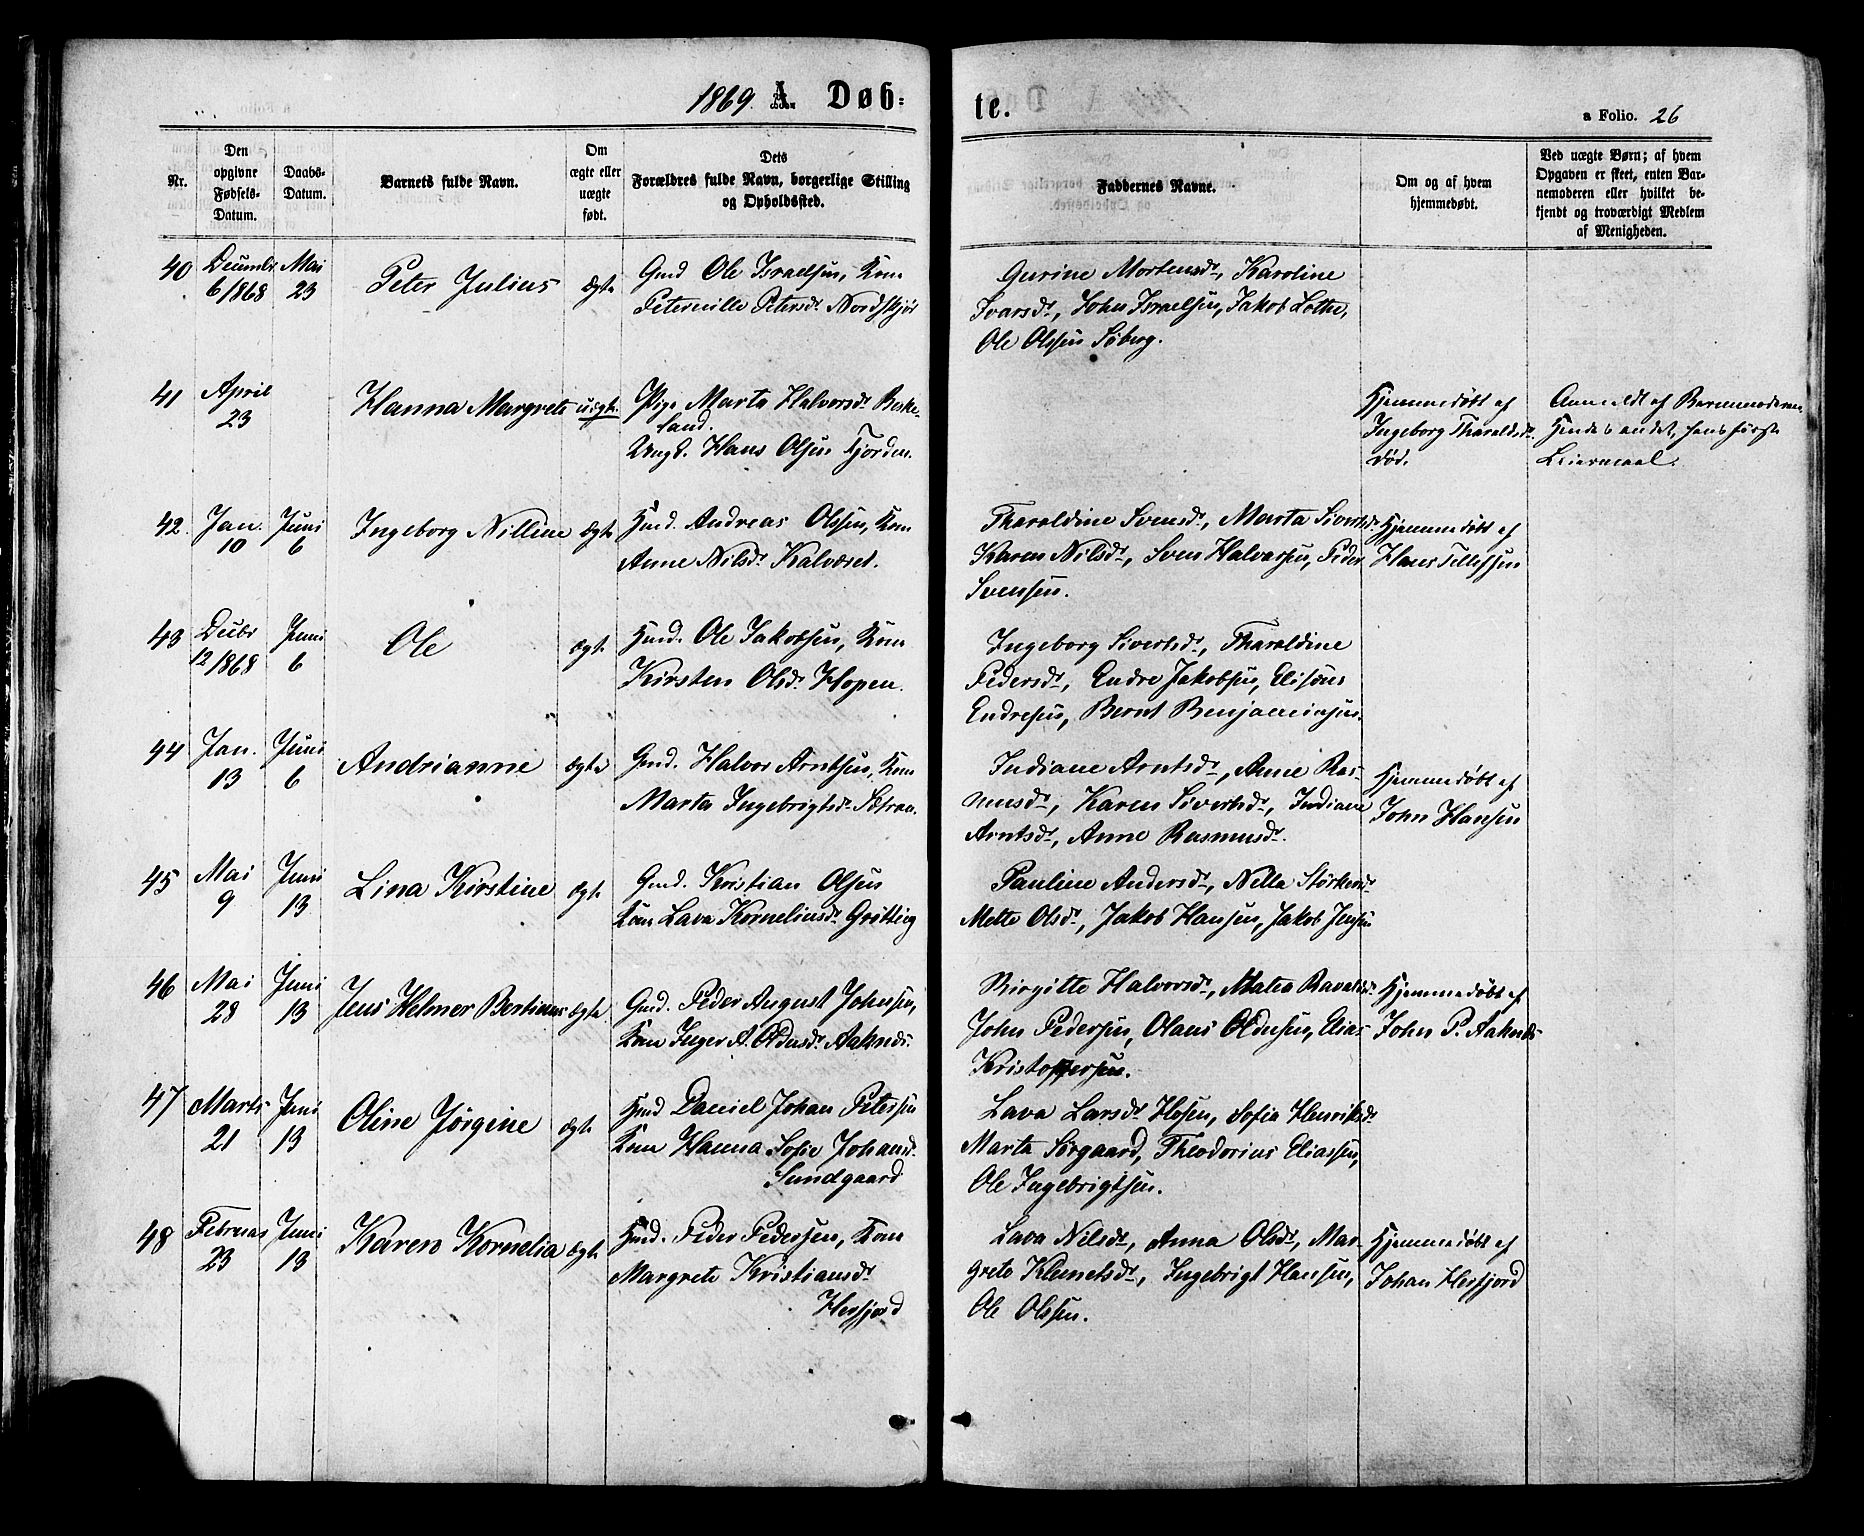 1869. A. Døb=
te.
a Folio. 26
Nr.
Den
opgivne
Fødsels-
Datum.
Daabs-
Datum.
Barnets fulde Navn.
Om
ægte eller
uægte
født.
Dets
Forældres fulde Navn, borgerlige Stilling
og Opholdssted.
Faddernes Navne.
Om og af hvem
hjemmedøbt.
Ved uægte Børn; af hvem
Opgaven er skeet, enten Bar-
nemoderen eller hvilket be-
kjendt og troværdigt Medlem
af Menigheden.
40
Decembr
6/1868
Mai
23
Peter Julius
ægte
Gmd Ole Israelsen, Kone
Petternille Petersdr. Nordskjør
Gurine Mortensdr, Karoline
Ivarsdr, John Israelsen, Jakob Lothe,
Ole Olssen Söberg.
41
April
23
Hanna Margrete
uægte
Pige Marta Halvorsdr. Beske-
land.
Ungk. Hans Olsen Fjorden.
Hjemmedöbt af
Ingeborg Tharaldsdr.
död.
Anmeldt af Barnemoderen.
Hendes andet, hans første
Leiermaal.
42.
Jan.
10
Juni
6
Ingeborg Nilline
ægte
Hmd. Andreas Olssen, Kone
Anne Nilsdr. Kalværet.
Tharaldine Svensdr, Marta Sivertsdr.
Karen Nilsdr, Sven Halvorsen, Peder
Svensen.
Hjemmedöbt af
Hans Tellefsen
43
Decbr
12/1868
Juni
6
Ole
ægte
Hmd. Ole Jakobsen, Kone
Kirsten Olsdr. Hopen.
Ingeborg Sivertsdr, Tharaldine
Pedersdr, Endre Jakobsen, Elisæus
Endresen, Bernt Benjaminsen.
44
Jan.
13
Juni
6
Andrianne
ægte
Gmd. Halvor Arntsen, Kone
Marta Ingebrigtsdr. Sætran.
Indiane Arntsdr, Anne Ras-
musdr, Karen Sivertsdr, Indiane
Arntsdr, Anne Rasmusdr.
Hjemmedöbt af
John Hansen
45
Mai
9
Juni
13
Lina Kirstine
ægte
Gmd. Kristian Olsen
Kone Lava Korneliusdr.
Pauline Andersdr, Nella Störkersdr
Mette Olsdr, Jakob Hansen, Jakob Jensen
46
Mai
28
Juni
13
Jens Helmer Bertinus
ægte
Gmd. Peder August Johnsen,
Kone Inger A. Oldensdr. Aaknes.
Birgitte Halvorsdr, Matea
John Pedersen, Olaus Oldensen, Elias
Kristoffersen.
Hjemmedöbt af
John P. Aaknes
47
Marts
21
Juni
13
Oline Jørgine
ægte
Hmd Daniel Johan Petersen
Kone Hanna Sofie Johansdr.
Sundgaard
Lava Larsdr Hosen, Sofia Henriksdr
Marta Sörgaard, Theodorius Eliassen,
Ole Ingebrigtsen.
48
Februar
23
Juni
13
Karen Kornelia
ægte
Hmd. Peder Pedersen, Kone
Margrete Kristiansdr.
Herfjord
Lava Nilsdr, Anna Olsdr, Mar-
grete Klemetsdr, Ingebrigt Hansen,
Ole Olssen.
Hjemmedöbt af
Johan Herfjord